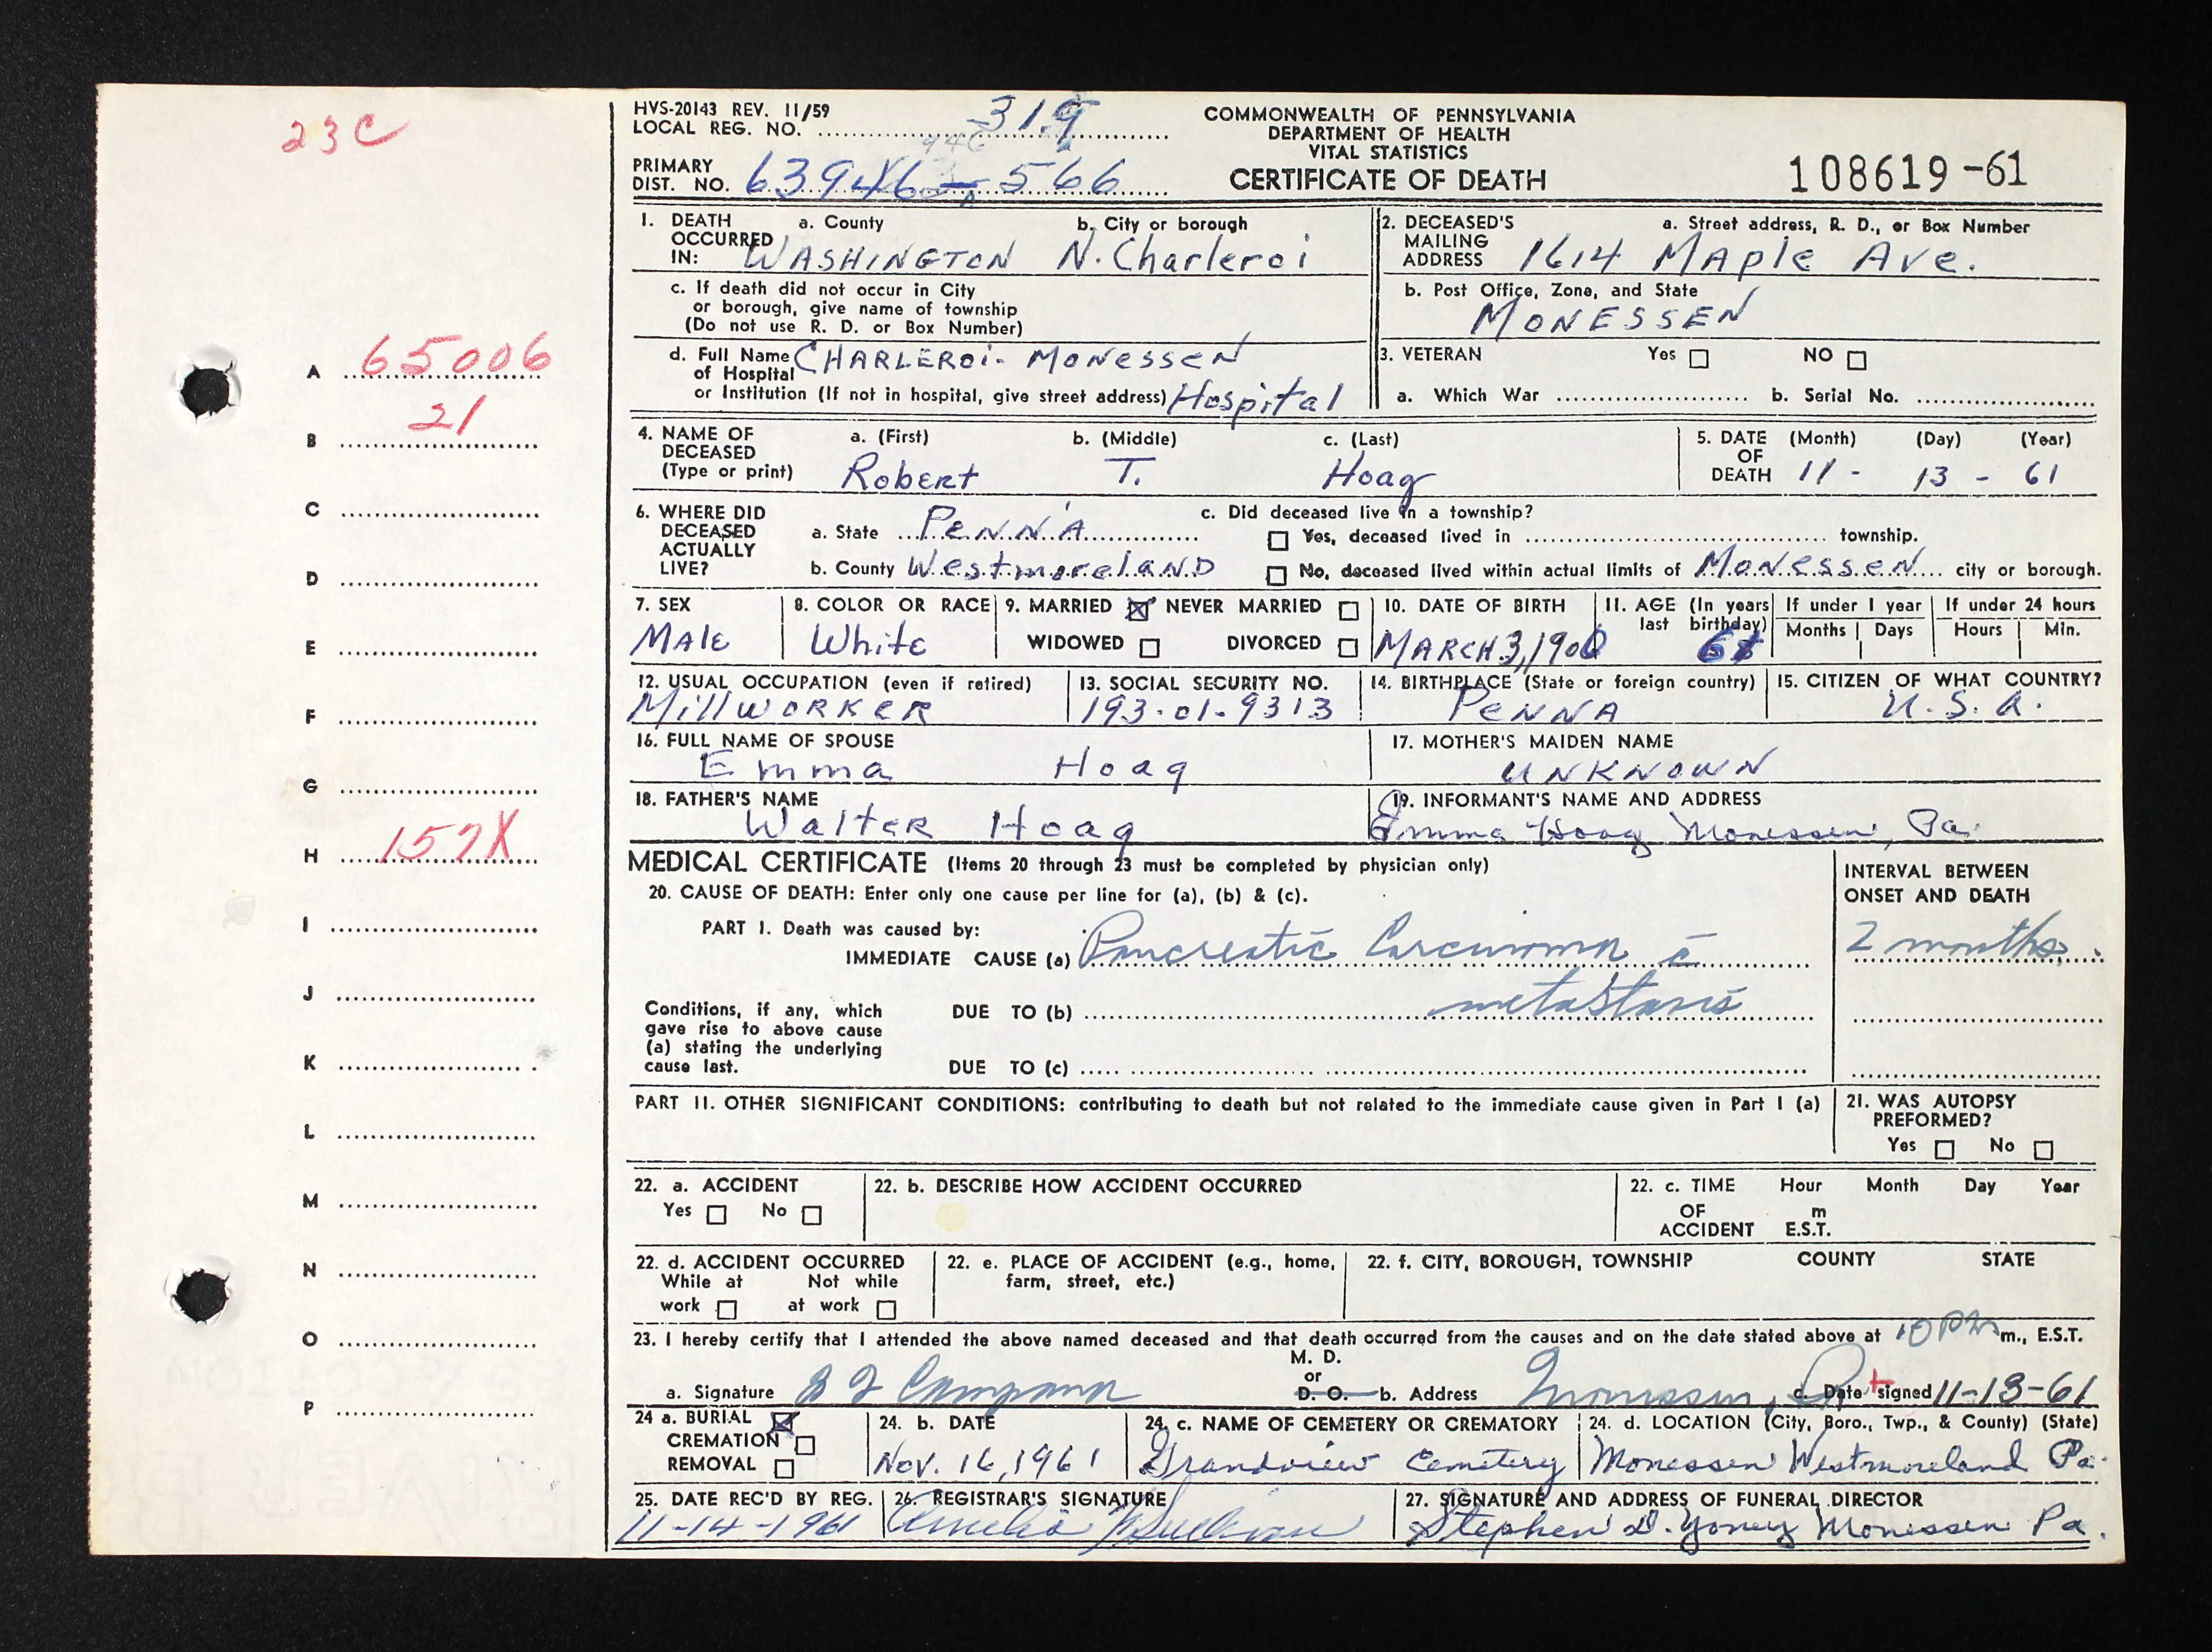 23C
HVS-20143 REV. 11/59
LOCAL REG. NO. 319
COMMONWEALTH OF PENNSYLVANIA
DEPARTMENT OF HEALTH
VITAL STATISTICS
CERTIFICATE OF DEATH
PRIMARY
DIST. NO. 566
108619-61
1. DEATH OCCURRED IN: a. County WASHINGTON b. City or borough N. Charleroi
c. If death did not occur in City
or borough, give name of township
(Do not use R. D. or Box Number)
d. Full Name of Hospital CHARLEROI- MONESSEN
or Institution (If not in hospital, give street address) Hospital
2. DECEASED'S MAILING ADDRESS a. Street address, R. D., or Box Number
1614 MAPle Ave.
b. Post Office, Zone, and State
MONESSEN
3. VETERAN Yes NO
a. Which War b. Serial No.
4. NAME OF DECEASED (Type or print) a. (First) b. (Middle) c. (Last)
Robert T. Hoag
5. DATE OF DEATH (Month) (Day) (Year)
11 - 13 - 61
6. WHERE DID DECEASED ACTUALLY LIVE?
a. State PENN'A
b. County WestmorelAND
c. Did deceased live in a township?
Yes, deceased lived in township.
No, deceased lived within actual limits of MONESSEN city or borough.
7. SEX
MAlE
8. COLOR OR RACE
White
9. MARRIED NEVER MARRIED
WIDOWED DIVORCED
10. DATE OF BIRTH
MARCH 3, 1900
11. AGE (In years last birthday)
61
If under 1 year
Months Days
If under 24 hours
Hours Min.
12. USUAL OCCUPATION (even if retired)
MillWORKER
13. SOCIAL SECURITY NO.
193-01-9313
14. BIRTHPLACE (State or foreign country)
PENNA
15. CITIZEN OF WHAT COUNTRY?
U. S. A.
16. FULL NAME OF SPOUSE
Emma Hoag
17. MOTHER'S MAIDEN NAME
UNKNOWN
18. FATHER'S NAME
WaltER Hoag
19. INFORMANT'S NAME AND ADDRESS
Emma Hoag Monessen, Pa.
MEDICAL CERTIFICATE (Items 20 through 23 must be completed by physician only)
20. CAUSE OF DEATH: Enter only one cause per line for (a), (b) & (c).
INTERVAL BETWEEN
ONSET AND DEATH
PART I. Death was caused by:
IMMEDIATE CAUSE (a) Pancreatic Carcinoma c̄
2 months
Conditions, if any, which
gave rise to above cause
(a) stating the underlying
cause last.
DUE TO (b) metastasis
DUE TO (c)
PART II. OTHER SIGNIFICANT CONDITIONS: contributing to death but not related to the immediate cause given in Part I (a)
21. WAS AUTOPSY
PREFORMED?
Yes No
22. a. ACCIDENT
Yes No
22. b. DESCRIBE HOW ACCIDENT OCCURRED
22. c. TIME OF ACCIDENT Hour Month Day Year
m
E.S.T.
22. d. ACCIDENT OCCURRED
While at work Not while at work
22. e. PLACE OF ACCIDENT (e.g., home,
farm, street, etc.)
22. f. CITY, BOROUGH, TOWNSHIP COUNTY STATE
23. I hereby certify that I attended the above named deceased and that death occurred from the causes and on the date stated above at 10 PM m., E.S.T.
a. Signature Campana M. D. or D. O. b. Address Monessen, Pa c. Date signed 11-13-61
24 a. BURIAL
CREMATION
REMOVAL
24. b. DATE
Nov. 16, 1961
24. c. NAME OF CEMETERY OR CREMATORY
Grandview Cemetery
24. d. LOCATION (City, Boro., Twp., & County) (State)
Monessen Westmoreland Pa.
25. DATE REC'D BY REG.
11-14-1961
26. REGISTRAR'S SIGNATURE
Sullivan
27. SIGNATURE AND ADDRESS OF FUNERAL DIRECTOR
Stephen D. Yoney Monessen Pa.
A 65006
B 21
C
D
E
F
G
H 157X
I
J
K
L
M
N
O
P